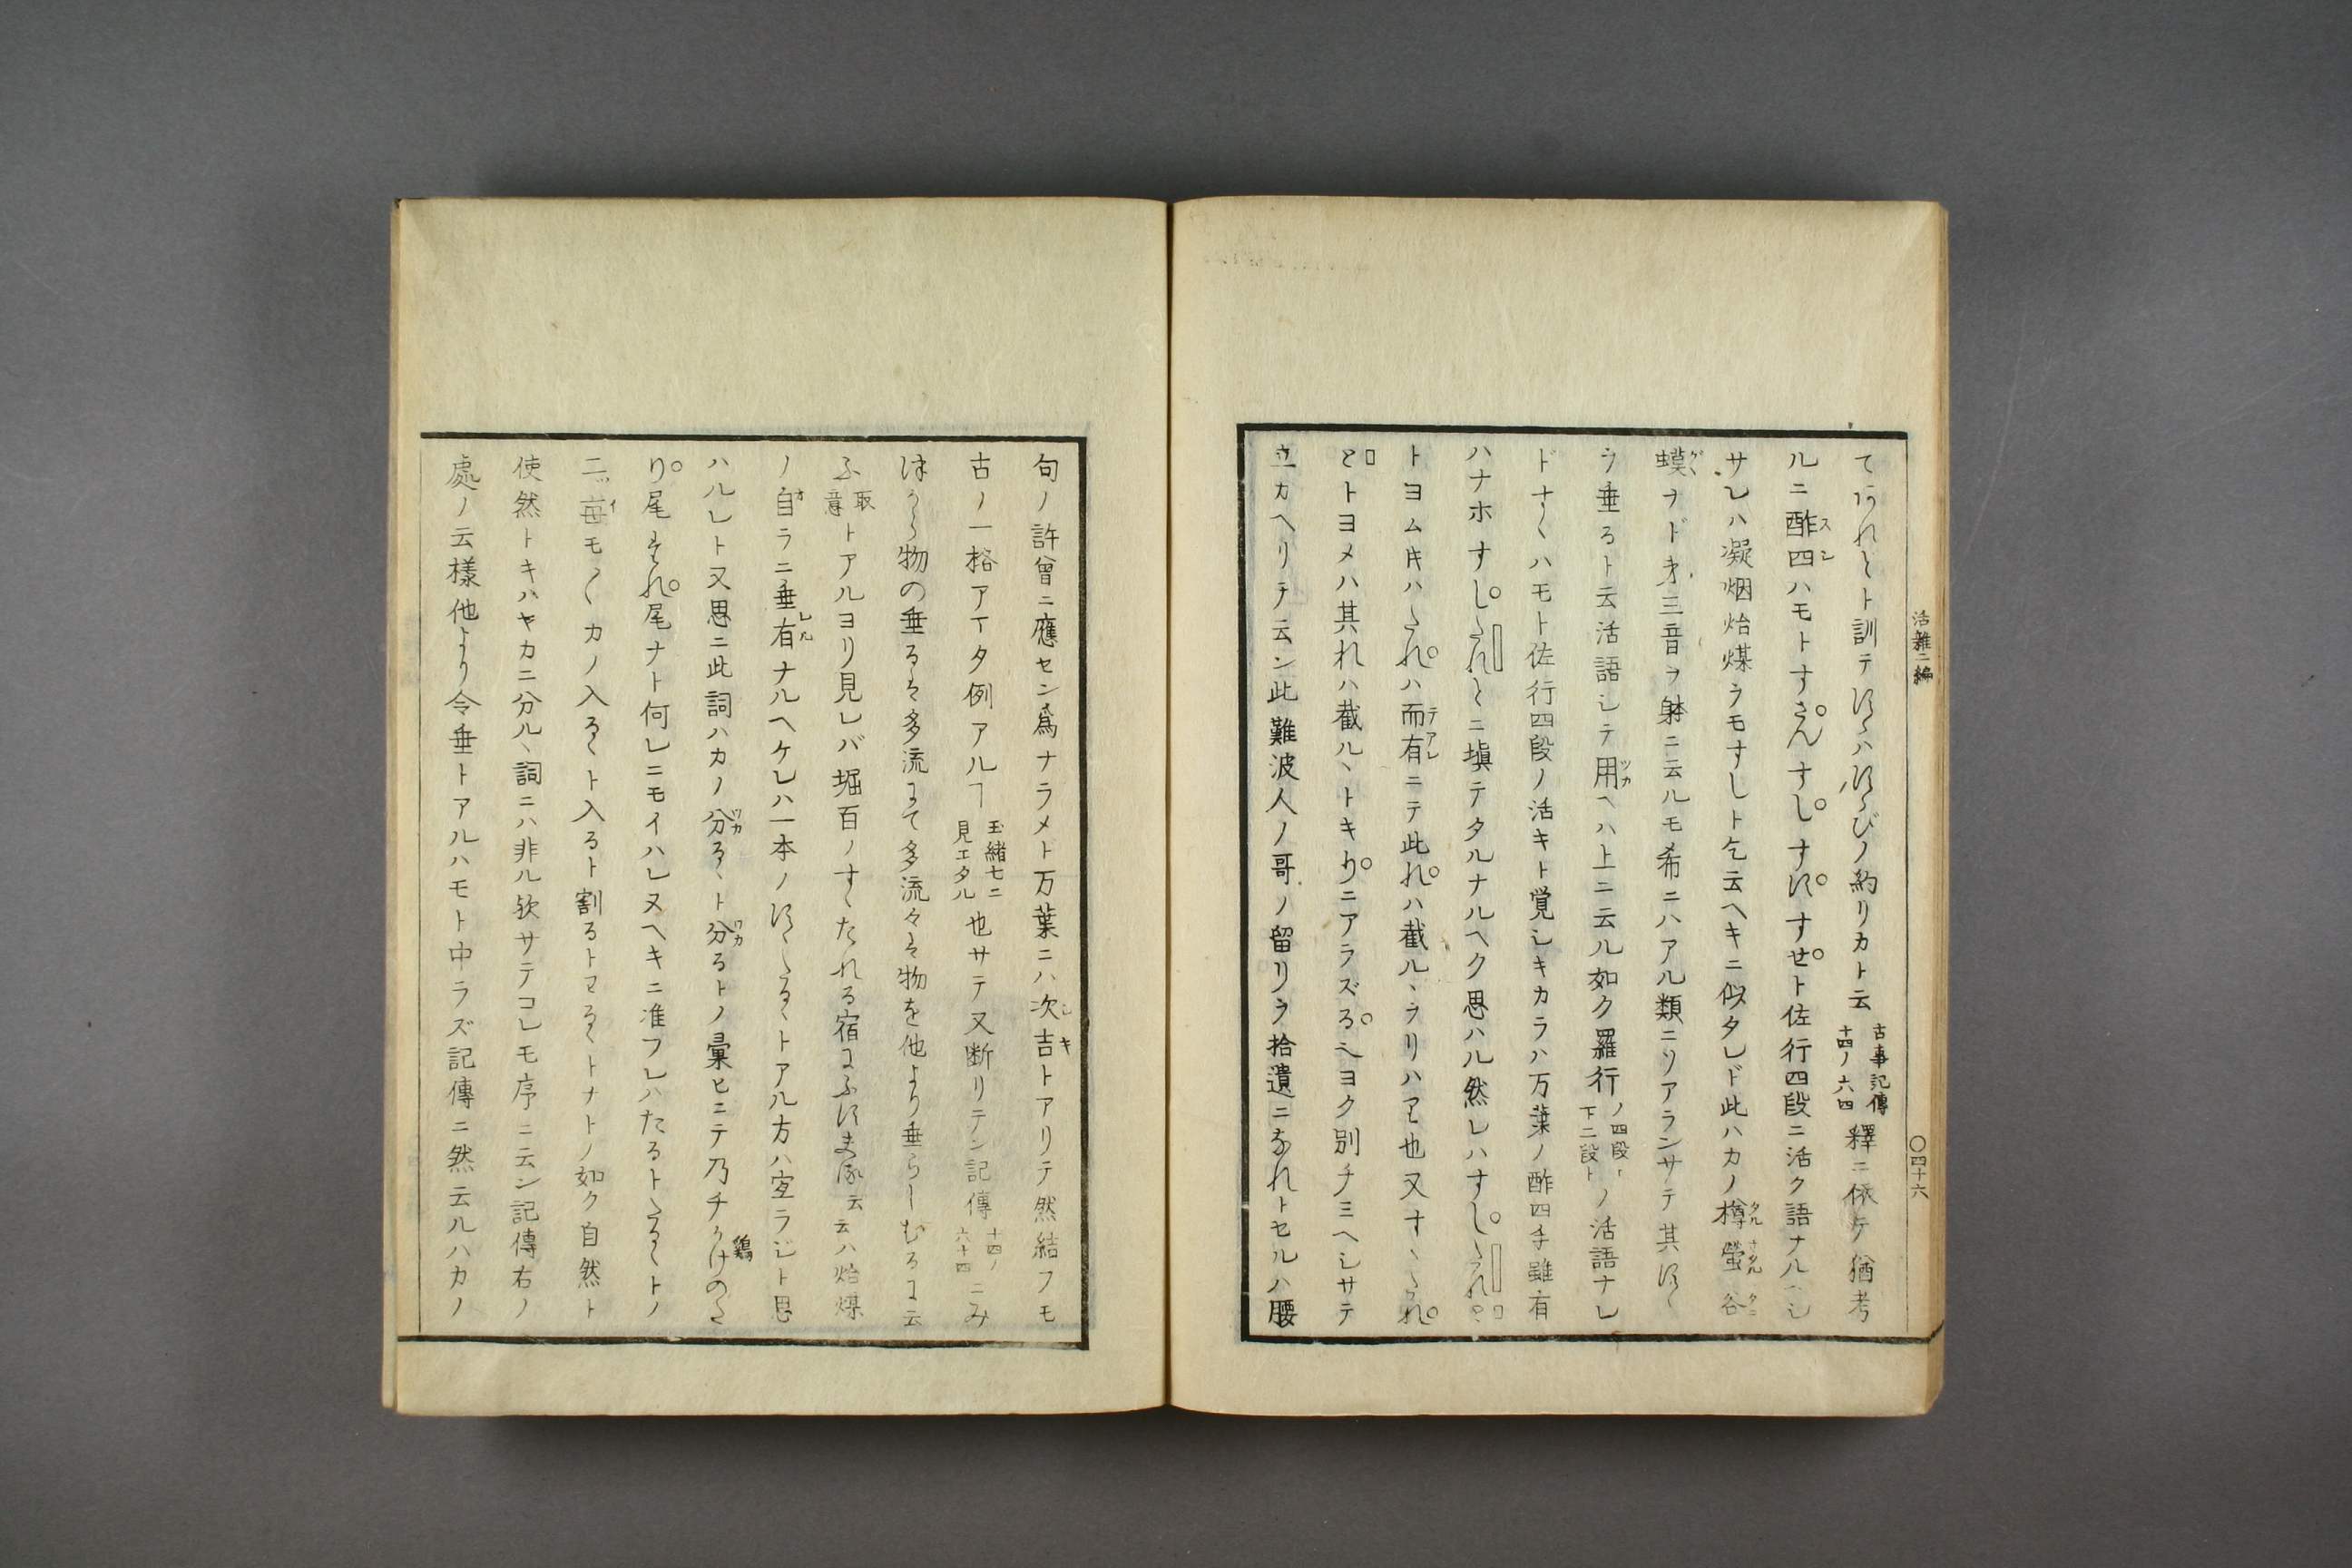 てけれとト訓テすゝハすゝびノ約リカト云古事記傳十四ノ六四釋ニ依テ猶考
ルニ酢四ハモトすさんすしすすすせト佐行四段ニ活ク語ナルヘシ
サレハ凝烟炲煤ラモすしト乞云ヘキニ似タレド此ハカノ樽蛍谷
蟆ヲド才三音ヲ躰ニ云ルモ希ニハアル類ニリアランサテ其すゝ
ヲ垂ろト云活語シテ用ヘハ上ニ云ル如ク羅行ノ四段ト下二段トノ活語ナレ
ドすゝハモト佐行四段ノ活キト覚シキカラハ万葉ノ酢四手雖有
ハナホすしたれとニ填テタルナルヘク思ハル然レハすしたれと
トヨム片ハたれハ而有ニテ此れハ截ルヽラリハアリ也又すゝたれ
とトヨメハ其れハ截ルヽトキりニアラズろヘヨク別チミヘシサテ
立カヘリテ云ン此難波人ノ哥ノ留リヲ拾遺ニなれトセルハ腰
活雑二編
〇四十六
句ノ許曾ニ應セン爲ナラメト万葉ニハ次吉トアリテ然結フモ
古ノ一格アイタ例アルヿ玉緒七ニ見エタル也サテ又断リテン記傳十四ノ六十四ニみ
づから物の垂るを多流まて多流々を物を他より垂らしむるま云
ふ取意トアルヨリ見レバ堀百ノすゝたれる宿まふすま云云ハ炲煤
ノ自ラニ垂有ナルヘケレハ一本ノすゝたるゝトアル方ハ宜ラジト思
ハルレト又思ニ此詞ハカノ分るヽト分るトノ彙ヒニテ乃チかけのた鶏
り尾それ尾ナト何レニモイハレ又ヘキニ准フレハたるトたるゝトノ
二ッ苺モ〱カノ入るゝト入るト割るトマるゝトナトノ如ク自然ト
使然トキハヤカニ分ルヽ詞ニハ非ル欤サテコレモ序ニ云ン記傳右ノ
處ノ云様他より令垂トアルハモト中ラズ記傳ニ然云ルハカノ